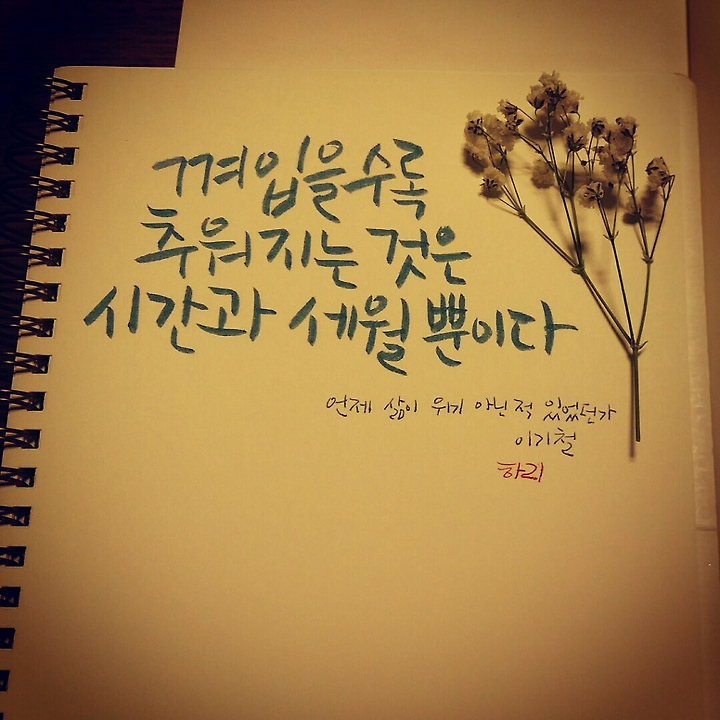 껴입을수록
추워지는 것은
시간과 세월 뿐이다
언제 삶이 위기 아닌적 있었던가
이기철
하리